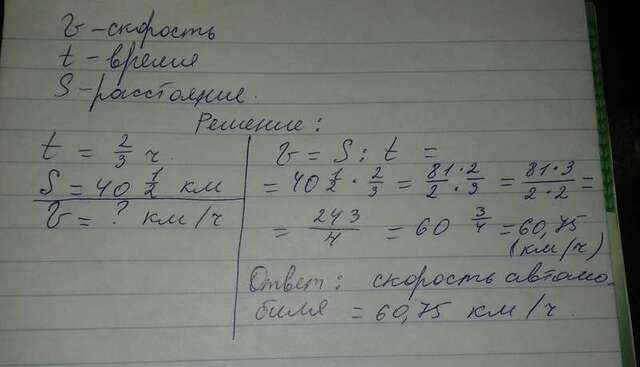 V - скорость
t - время
S - расстояние.
Решение:
t = 2/3 ч.
S = 40 1/2 км
V = ? км/ч
V = S : t =
= 40 1/2 · 2/3 = 81·2/2·3 = 81·3/2·2 =
= 243/4 = 60 3/4 = 60,75
(км/ч)
Ответ: скорость автомо-
биля = 60,75 км/ч.